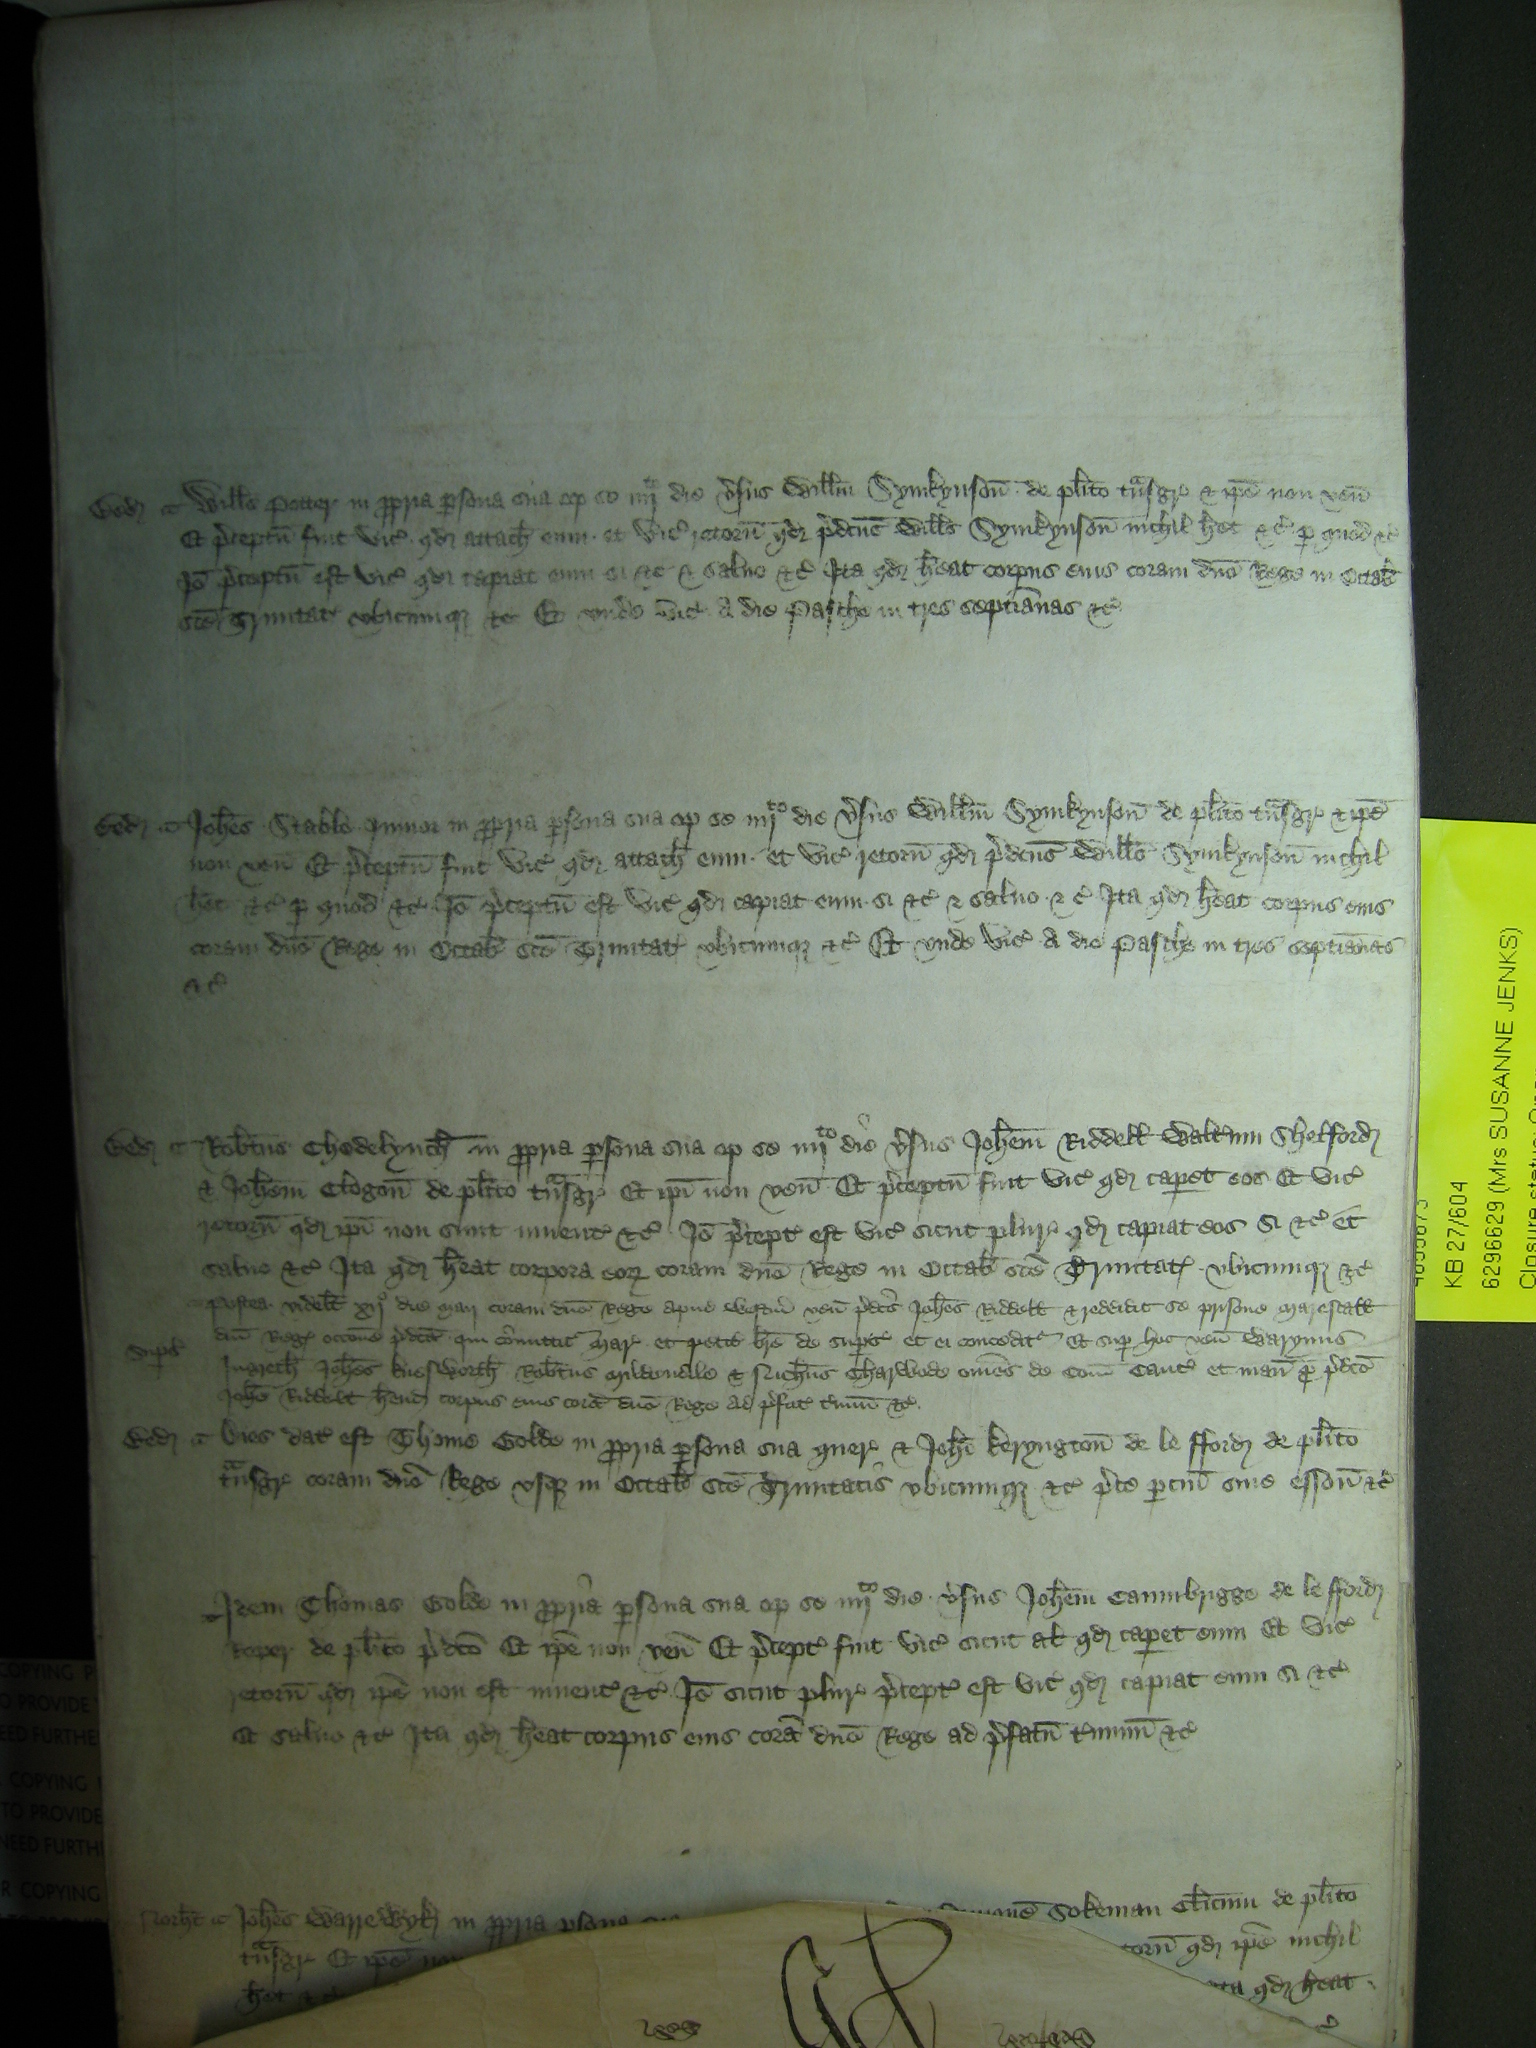 Bed Wills Potter in ppria psona sua op se iiijto die vsus Willm Symkynson de plito tnsgr & ipe non ven
Et pceptu fuit vic qd attach eum et vic retorn qd pdcus Wills Symkynson nichil het &c p quod &c
Io pceptu est vic qd capiat eum si &c & salvo &c Ita qd heat corpus eius coram dno Rege in Octab
sce Trinitat vbicumq &c Et vnde vic A die Pasche in tres septianas &c
Bed Johes Stable Junior in ppria psona sua op se iiijto die vsus Willm Symkynson de plito tnsgr & ipe
non ven Et pceptu fuit vic qd attach eum et vic retorn qd pdcus Wills Symkynson nichil
het &c p quod &c Io pceptu est vic qd capiat eum si &c & salvo &c Ita qd heat corpus eius
coram dno Rege in Octab sce Trinitat vbicumq &c Et vnde vic A die Pasche in tres septianas
&c
Bed Robtus Chedelynch in ppria psona sua op se iiijto die vsus Johem Riddell Waltum Shefford
& Johem Clogon de plito tnsgr Et ipi non ven Et pceptu fuit vic qd capet eos Et vic
retorn qd ipi non sunt invent &c Io pcept est vic sicut plur qd capiat eos si &c et
salvo &c Ita qd heat corpora eor coram dno Rege in Octab sce Trinitat vbicumq &c
Postea videlt xijo die Maij coram dno Rege apud Westm ven pdcs Johes Riddell & reddidit se prisone marescall
dni Reg occone pdca qui comittit mar et petit bre de sups et ei concedit Et sup hoc ven Warynus
sups
Ingreth Johes Robtus Mildenale & Nichus Charwode omes de Com Cant et man p pdco
Johe Riddell hend corpus eius cora dno Rege ad pfat tminu &c
Bed Dies dat est Thome Golde in ppria psona sua quer & Johi Keryngton de le fford de plito
tnsgr coram dno Rege vsq in Octab sce Trinitatis vbicumq &c pce pciu sine esson &c
Item Thomas Golde in ppria psona sua op se iiijto die vsus Johem Caumbrigge de le fford
Roper de plito pdco Et ipe non ven Et pcept fuit vic sicut al qd capet eum Et vic
retorn qd ipe non est invent &c Io sicut plur pcept est vic qd capiat eum si &c
Et salvo &c Ita qd heat corpus eius cora dno Rege ad pfatu tminu &c
Norht Johes Warrewyk in ppria psona sua Sokeman Clicum de plito
tnsgr Et ipe non torn qd ipe nichil
het &c ita qd heat
KB 27/604
6296629 (Mrs SUSANNE JENKS)
COPYING
TO PROVIDE
NEED FURTHE
COPYING
TO PROVIDE
NEED FURTH
COPYING